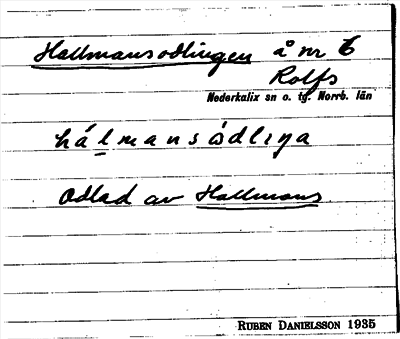 Hallmansodlingen å nr 6
Rolfs
Nederkalix sn o. tg. Norrb. län
hálmansòdliŋa
Odlad av Hallmans
RUBEN DANIELSSON 1935